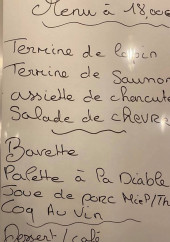 Menu à 18,00€
Terrine de lapin
Terrine de Saumon
assiette de charcute
Salade de chèvre
Bavette
Palette à la Diable
Joue de porc Miel/Th
Coq Au Vin
Dessert / café